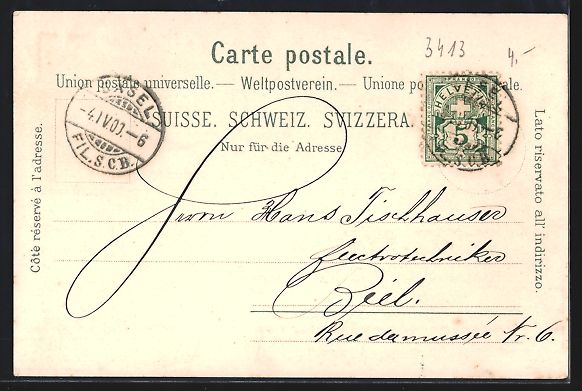 3413
4,-
Carte postale.
Union postale universelle. — Weltpostverein. — Unione postale.
SUISSE. SCHWEIZ. SVIZZERA.
Nur für die Adresse
BASEL
-4.IV.01.-6
FIL.S.C.B.
HELVETIA
5
Côté réservé à l'adresse.
Lato riservato all' indirizzo.
Herrn Hans Tischhauser
Electrotechniker
Biel.
Rue du musée Nr. 6.